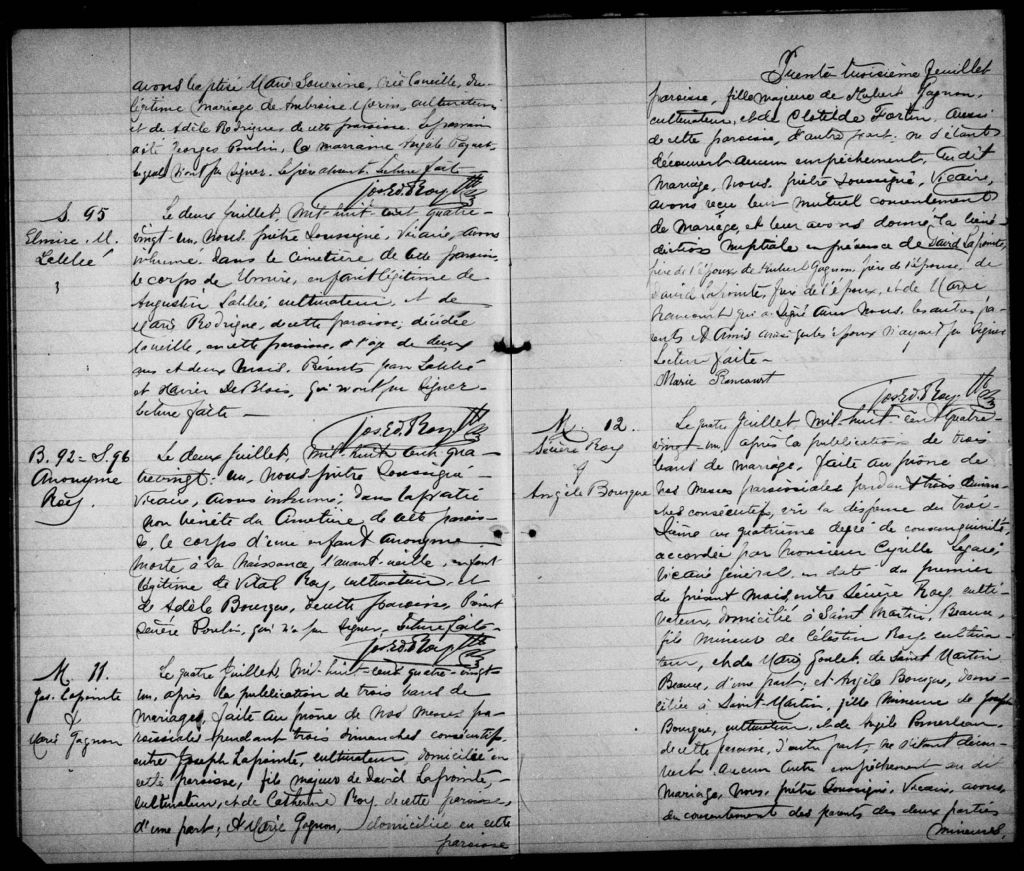 avons baptisé Marie Séverine, née la veille, du
légitime mariage de Ambroise Morin, cultivateur
et de Adèle Rodrigue de cette paroisse. Le parrain
a été Georges Poulin, la marraine Paquet
lesquels n'ont pu signer. Le père absent. Lecture faite
Jos. Ed. Roy Ptre
S. 95
Elmire M.
Leblié
Le deux Juillet, mil-huit-cent quatre-
vingt-un, nous prêtre soussigné, Vicaire, avons
inhumé dans le cimetière de cette paroisse,
le corps de Elmire, enfant légitime de
Augustin cultivateur, et de
Marie Rodrigue, de cette paroisse, décédée
la veille, en cette paroisse, à l'age de deux
ans et deux mois. Présents Jean
et Xavier DeBlois, qui n'ont pu signer.
Lecture faite —
Jos. Ed. Roy Ptre
B. 92 - S. 96
Anonyme
Roy.
Le deux Juillet, mil-huit cent qua-
trevingt-un, nous prêtre soussigné
Vicaire, avons inhumé, dans la partie
non bénite du Cimetière de cette parois-
se, le corps d'une enfant anonyme
morte à sa naissance, l'avant-veille, enfant
légitime de Vital Roy, cultivateur, et
de Adèle Bourque, de cette paroisse, Présent
Sévère Poulin, qui n'a pu signer. Lecture faite
Jos. Ed. Roy Ptre
M. 11.
Jos. Lapointe
&
Marie Gagnon
Le quatre Juillet, mil-huit-cent quatre-vingt-
un, après la publication de trois bans de
mariage, faite au prône de nos messes pa-
roissiales pendant trois dimanches consécutifs,
entre Joseph Lapointe, cultivateur, domicilié en
cette paroisse, fils majeur de David Lapointe,
cultivateur, et de Catherine Roy, de cette paroisse,
d'une part; et Marie Gagnon, domiciliée en cette
paroisse
Trente troisième feuillet
paroisse, fille majeure de Hubert Gagnon,
cultivateur, et de Clotilde Fortin, aussi
de cette paroisse, d'autre part; ne s'étant
découvert aucun empêchement, au dit
mariage, nous, prêtre soussigné, Vicaire,
avons reçu leur mutuel consentement
de mariage, et leur avons donné la béné-
diction nuptiale en présence de David Lapointe,
père de l'époux, de Hubert Gagnon, père de l'épouse, de
David Lapointe, frère de l'époux, et de Marie
Rancourt qui a signé avec nous, les autres pa-
rents et amis ainsi que les époux n'ayant pu signer
Lecture faite —
Marie Rancourt
Jos. Ed. Roy Ptre
M. 12.
Sévère Roy
&
Angèle Bourque
Le quatre Juillet, mil-huit-cent quatre-
vingt-un, après la publication de trois
bans de mariage, faite au prône de
nos messes paroissiales pendant trois diman-
ches consécutifs, vu la dispense du troi-
sième au quatrième degré de consanguinité,
accordée par Monsieur Cyrille Legaré,
Vicaire Général, en date du premier
du présent mois, entre Sévère Roy, culti-
vateur, domicilié à Saint Martin, Beauce,
fils mineur de Célestin Roy, cultiva-
teur, et de Marie Goulet, de Saint Martin
Beauce, d'une part; et Angèle Bourque, domi-
ciliée à Saint-Martin, fille mineure de Joseph
Bourque, cultivateur, et de Angèle Pomerleau,
de cette paroisse, d'autre part; ne s'étant décou-
vert aucun autre empêchement au dit
mariage, nous, prêtre soussigné, Vicaire, avons
du consentement des parents des deux parties
mineures,